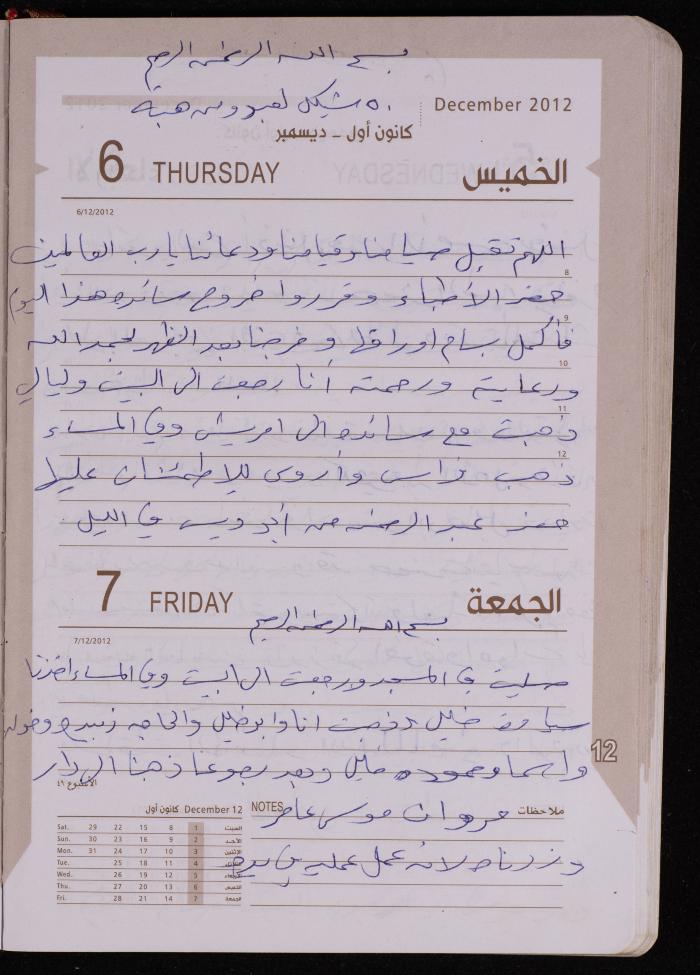 بسم الله الرحمن الرحيم
٥٠ شيكل لعبدو من هبة
December 2012
كانون أول - ديسمبر
6 THURSDAY الخميس
6/12/2012
اللهم تقبل صيامنا وقيامنا ودعائنا يا رب العالمين
8
حضر الأطباء وقرروا خروج سائده هذا اليوم
9
فأكمل بسام اوراقها وخرجنا بعد الظهر بحمد الله
10
ورعايته ورحمته أنا رجعت الى البيت وليالي
11
ذهبت مع سائده الى ابو ريش وفي المساء
12
ذهب فراس وأروى للاطمئنان عليها
حضر عبد الرحمن من أبو ديس في الليل
7 FRIDAY الجمعة
بسم الله الرحمن الرحيم
7/12/2012
صليت في المسجد ورجعت الى البيت وفي المساء اخذنا
سيارة خليل وذهبت انا وابو خليل والحاجه زبيده وخوله
واسما وحموده خليل وبعد ربوعا ذهبنا الى دار
12
الأسبوع ٤٩
مروان موسى عامر
ملاحظات NOTES
وزرناه لانه عمل عمليه في
December 12 كانون أول
Sat. 29 22 15 8 1 السبت
Sun. 30 23 16 9 2 الأحد
Mon. 31 24 17 10 3 الإثنين
Tue. 25 18 11 4 الثلاثاء
Wed. 26 19 12 5 الأربعاء
Thu. 27 20 13 6 الخميس
Fri. 28 21 14 7 الجمعة